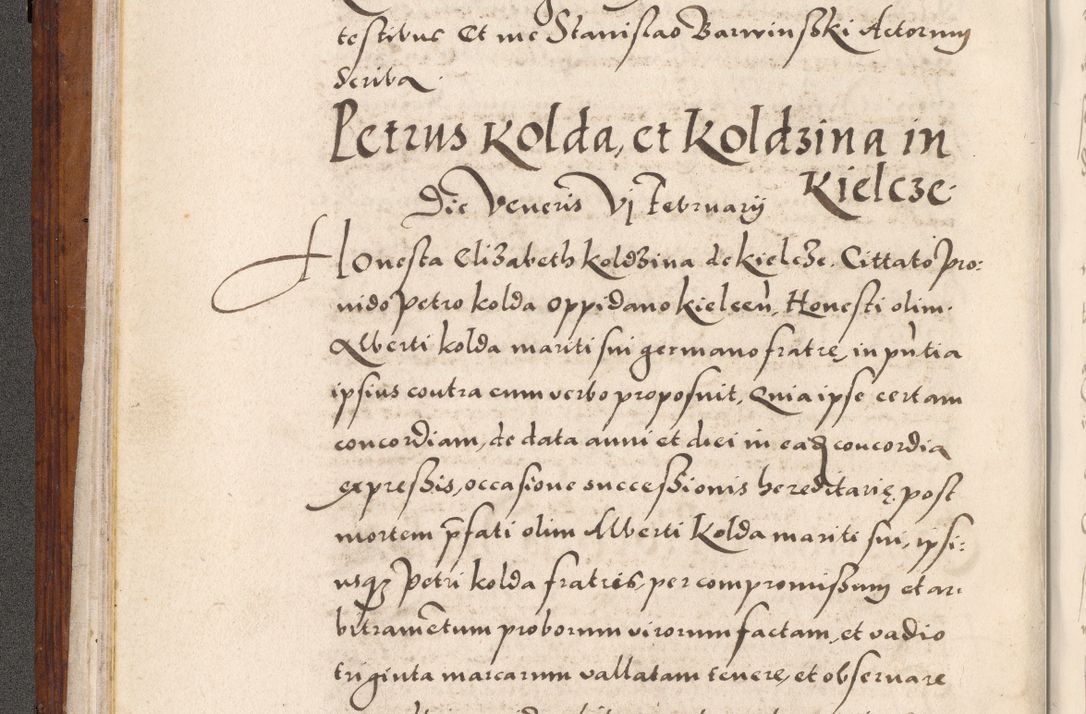 testibus Et me Stanislao Barwinsski Actorum
scriba.
Petrus Kolda, et Koldzina in
Kielcze.
Die Veneris Vj Februarij
Honesta Elizabeth koldzina de kielcze. Cittato Pro:
uido Petro kolda oppidano kielcen̄, Honesti olim
Alberti kolda mariti sui germano fratre, in pn̄tia
ipsius contra eum verbo proposuit, Quia ipse certam
concordiam, de data anni et diei in eadꝫ concordia
expressis, occasione successionis hereditarię, post
mortem p̄fati olim Alberti Kolda mariti sui, ipsi:
usqꝫ Petri kolda fratris, per compromissum et ar:
bitramētum proborum virorum factam, et vadio
triginta marcarum vallatam tenere, et obseruare